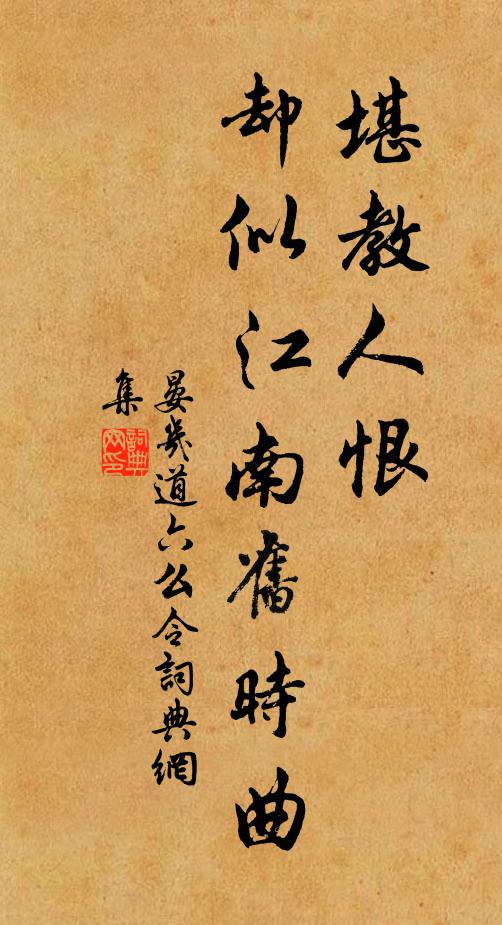 堪教人恨
却似江南舊時曲
晏幾道六么令詞典網
集
詞典
网印